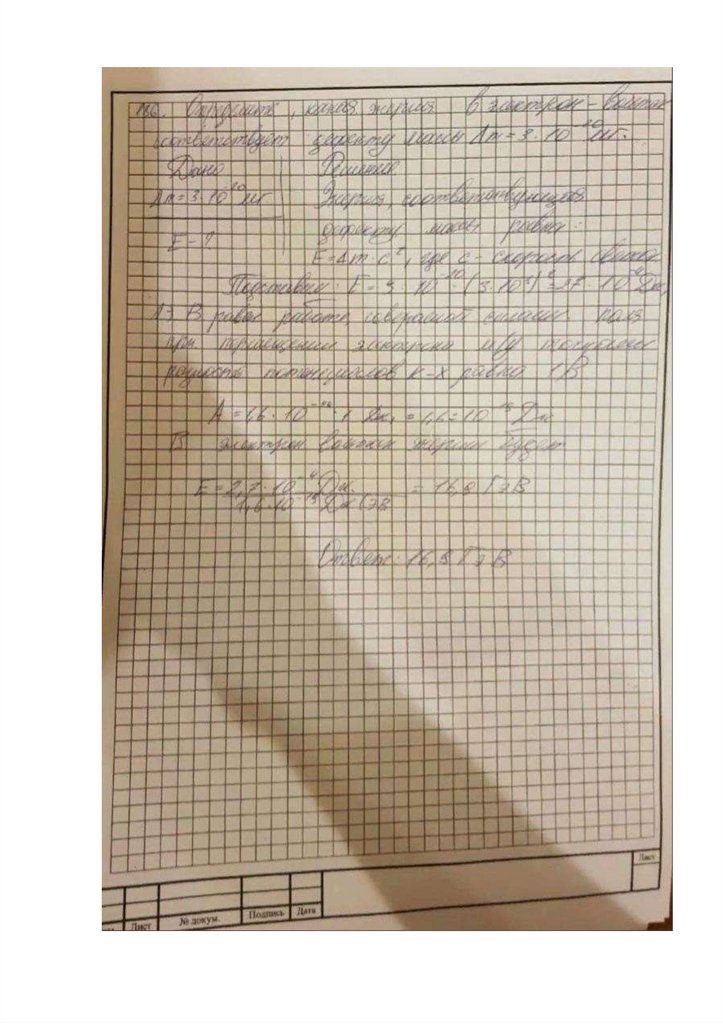 186. Определите, какая энергия в электрон-вольтах
соответствует дефекту массы Δm = 3·10⁻²⁰ мг.
Дано Решение
Δm = 3·10⁻²⁰ мг Энергия, соответствующая
дефекту массы равна:
E - ?
E = Δm·c², где c - скорость света
Подставим: E = 3·10 · (3·10⁸)² = 27·10 Дж,
1 э В равен работе, совершаемой силами поля
при перемещении электрона м/у точками
разность потенциалов к-х равна 1В
A = 1,6·10 · 1 Дж = 1,6·10 Дж
В электрон вольтах энергия будет
E = 2,7·10 Дж = 16,8 ГэВ
1,6·10 Дж/эВ
Ответ: 16,8 ГэВ
Лист
Лист № докум. Подпись Дата